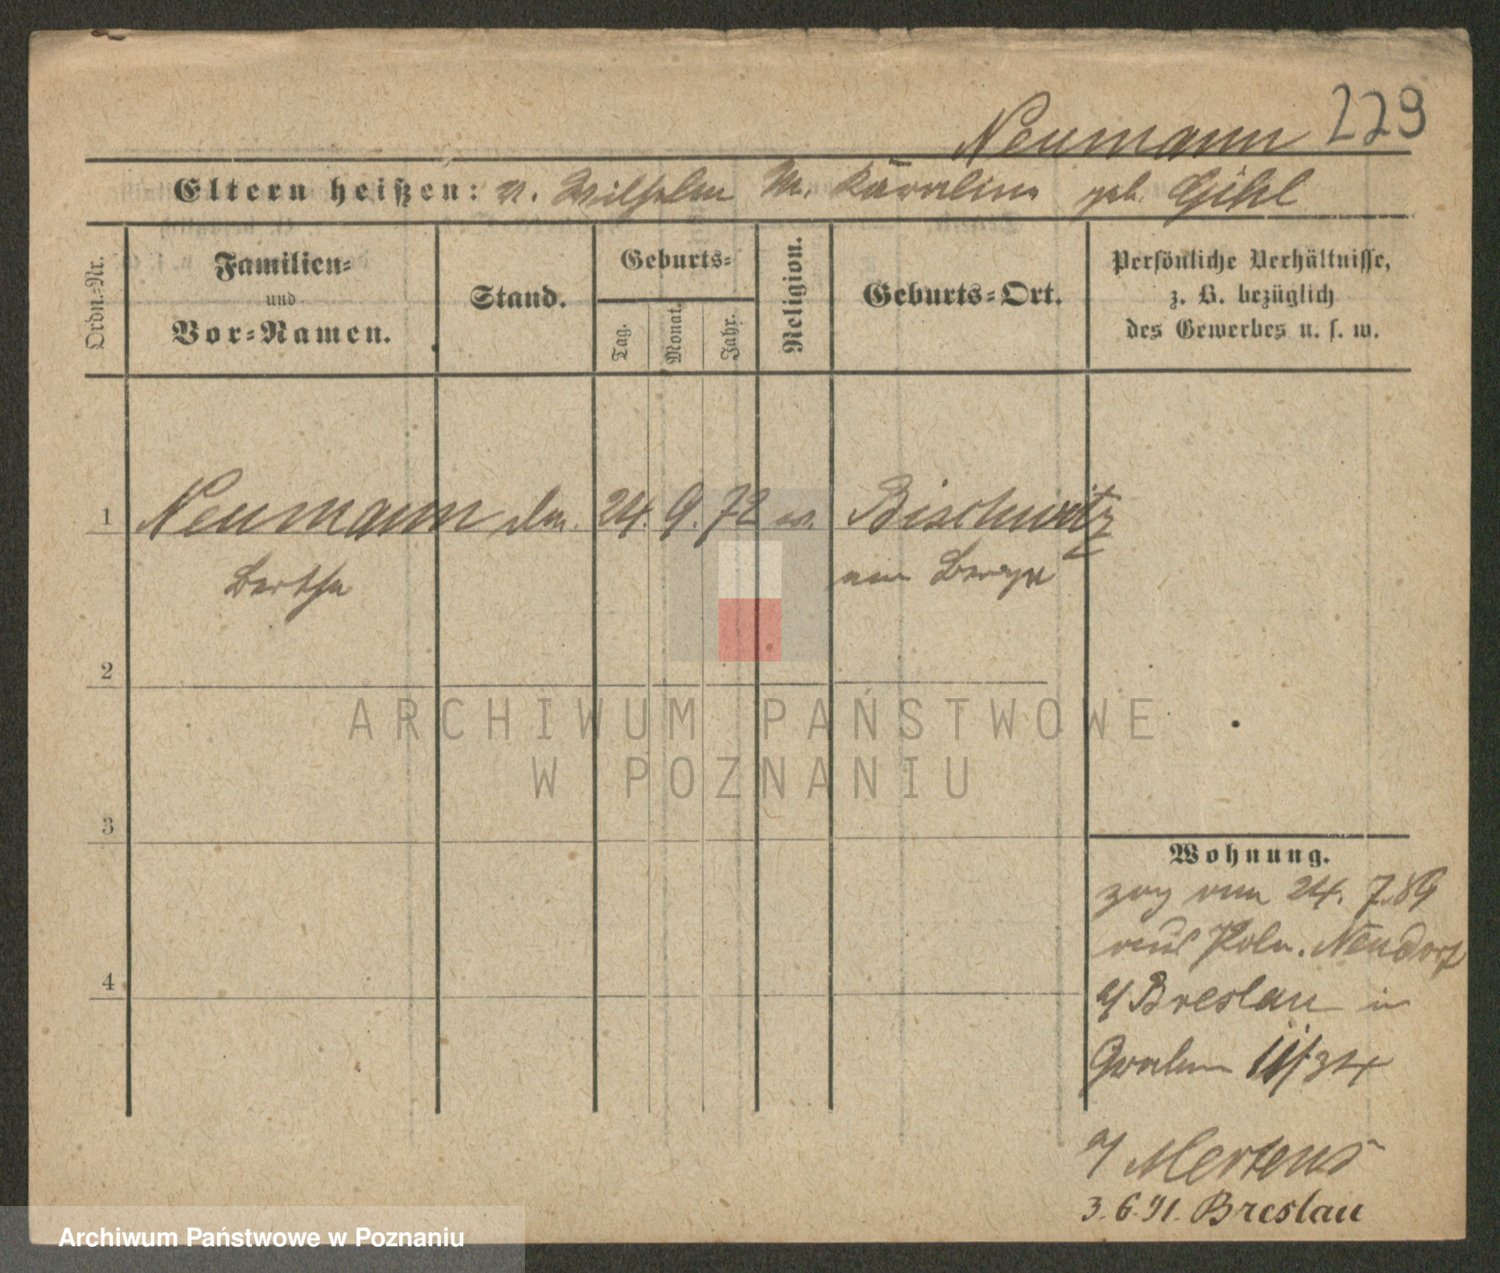 Neumann 229
Eltern heißen: V. Wilhelm M. Karoline geb. Gihl
Ordn.-Nr.
Familien-
und
Vor-Namen.
Stand.
Geburts-
Tag.
Monat.
Jahr.
Religion.
Geburts-Ort.
Persönliche Verhältnisse,
z. B. bezüglich
des Gewerbes u. s. w.
1 Neumann 24. 9. 72 Bischwitz
Bertha am Berge
2
ARCHIWUM PAŃSTWOWE
W POZNANIU
3
Wohnung.
zog am 24. 7. 89
aus Poln. Neudorf
4
b/ Breslau in
Graben 11/34
b/ Mertens
3. 6. 91. Breslau
Archiwum Państwowe w Poznaniu